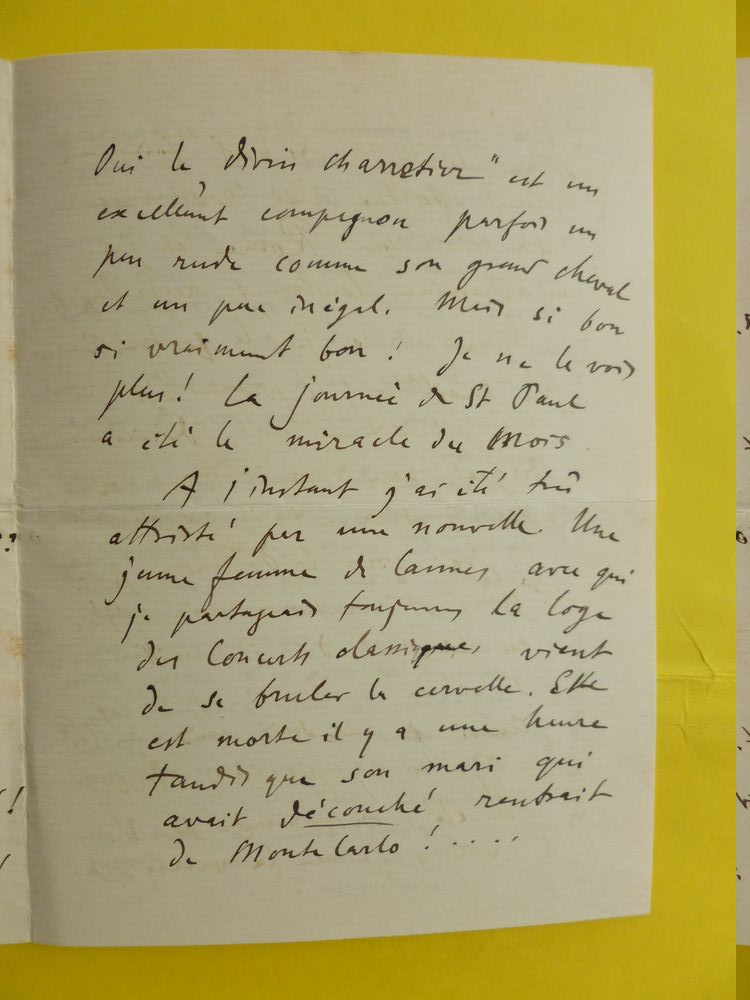 Oui le „divin charretier" est un
excellent compagnon parfois un
peu rude comme son grand cheval
et un peu inégal. Mais si bon
si vraiment bon ! Je ne le vois
plus ! La journée de St Paul
a été le miracle du Mois.
A l'instant j'ai été très
attristé par une nouvelle. Une
jeune femme de Cannes avec qui
je partageais toujours la loge
des Concerts classiques, vient
de se bruler la cervelle. Elle
est morte il y a une heure
tandis que son mari qui
avait découché rentrait
de Monte Carlo ! ....